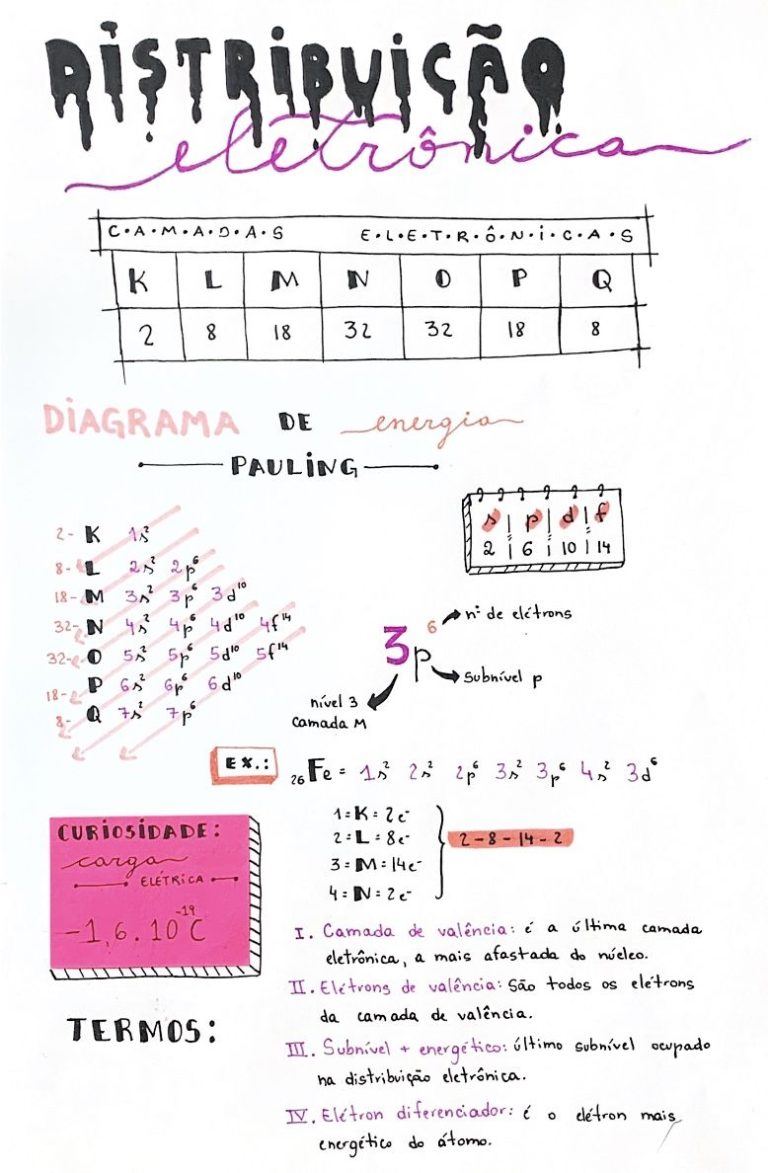 DISTRIBUIÇÃO
eletrônica
C·A·M·A·D·A·S E·L·E·T·R·Ô·N·I·C·A·S
K L M N O P Q
2 8 18 32 32 18 8
DIAGRAMA DE energia
PAULING
s | p | d | f
2 | 6 | 10 | 14
2- K 1s²
8- L 2s² 2p⁶
18- M 3s² 3p⁶ 3d¹⁰
32- N 4s² 4p⁶ 4d¹⁰ 4f¹⁴
32- O 5s² 5p⁶ 5d¹⁰ 5f¹⁴
18- P 6s² 6p⁶ 6d¹⁰
8- Q 7s² 7p⁶
3p⁶
nº de elétrons
Subnível p
nível 3
camada M
EX.:
₂₆Fe = 1s² 2s² 2p⁶ 3s² 3p⁶ 4s² 3d⁶
1=K=2e⁻
2=L=8e⁻
3=M=14e⁻
4=N=2e⁻
2-8-14-2
CURIOSIDADE:
carga
ELÉTRICA
-1,6.10⁻¹⁹C
TERMOS:
I. Camada de valência: é a última camada
eletrônica, a mais afastada do núcleo.
II. Elétrons de valência: São todos os elétrons
da camada de valência.
III. Subnível + energético: último subnível ocupado
na distribuição eletrônica.
IV. Elétron diferenciador: é o elétron mais
energético do átomo.